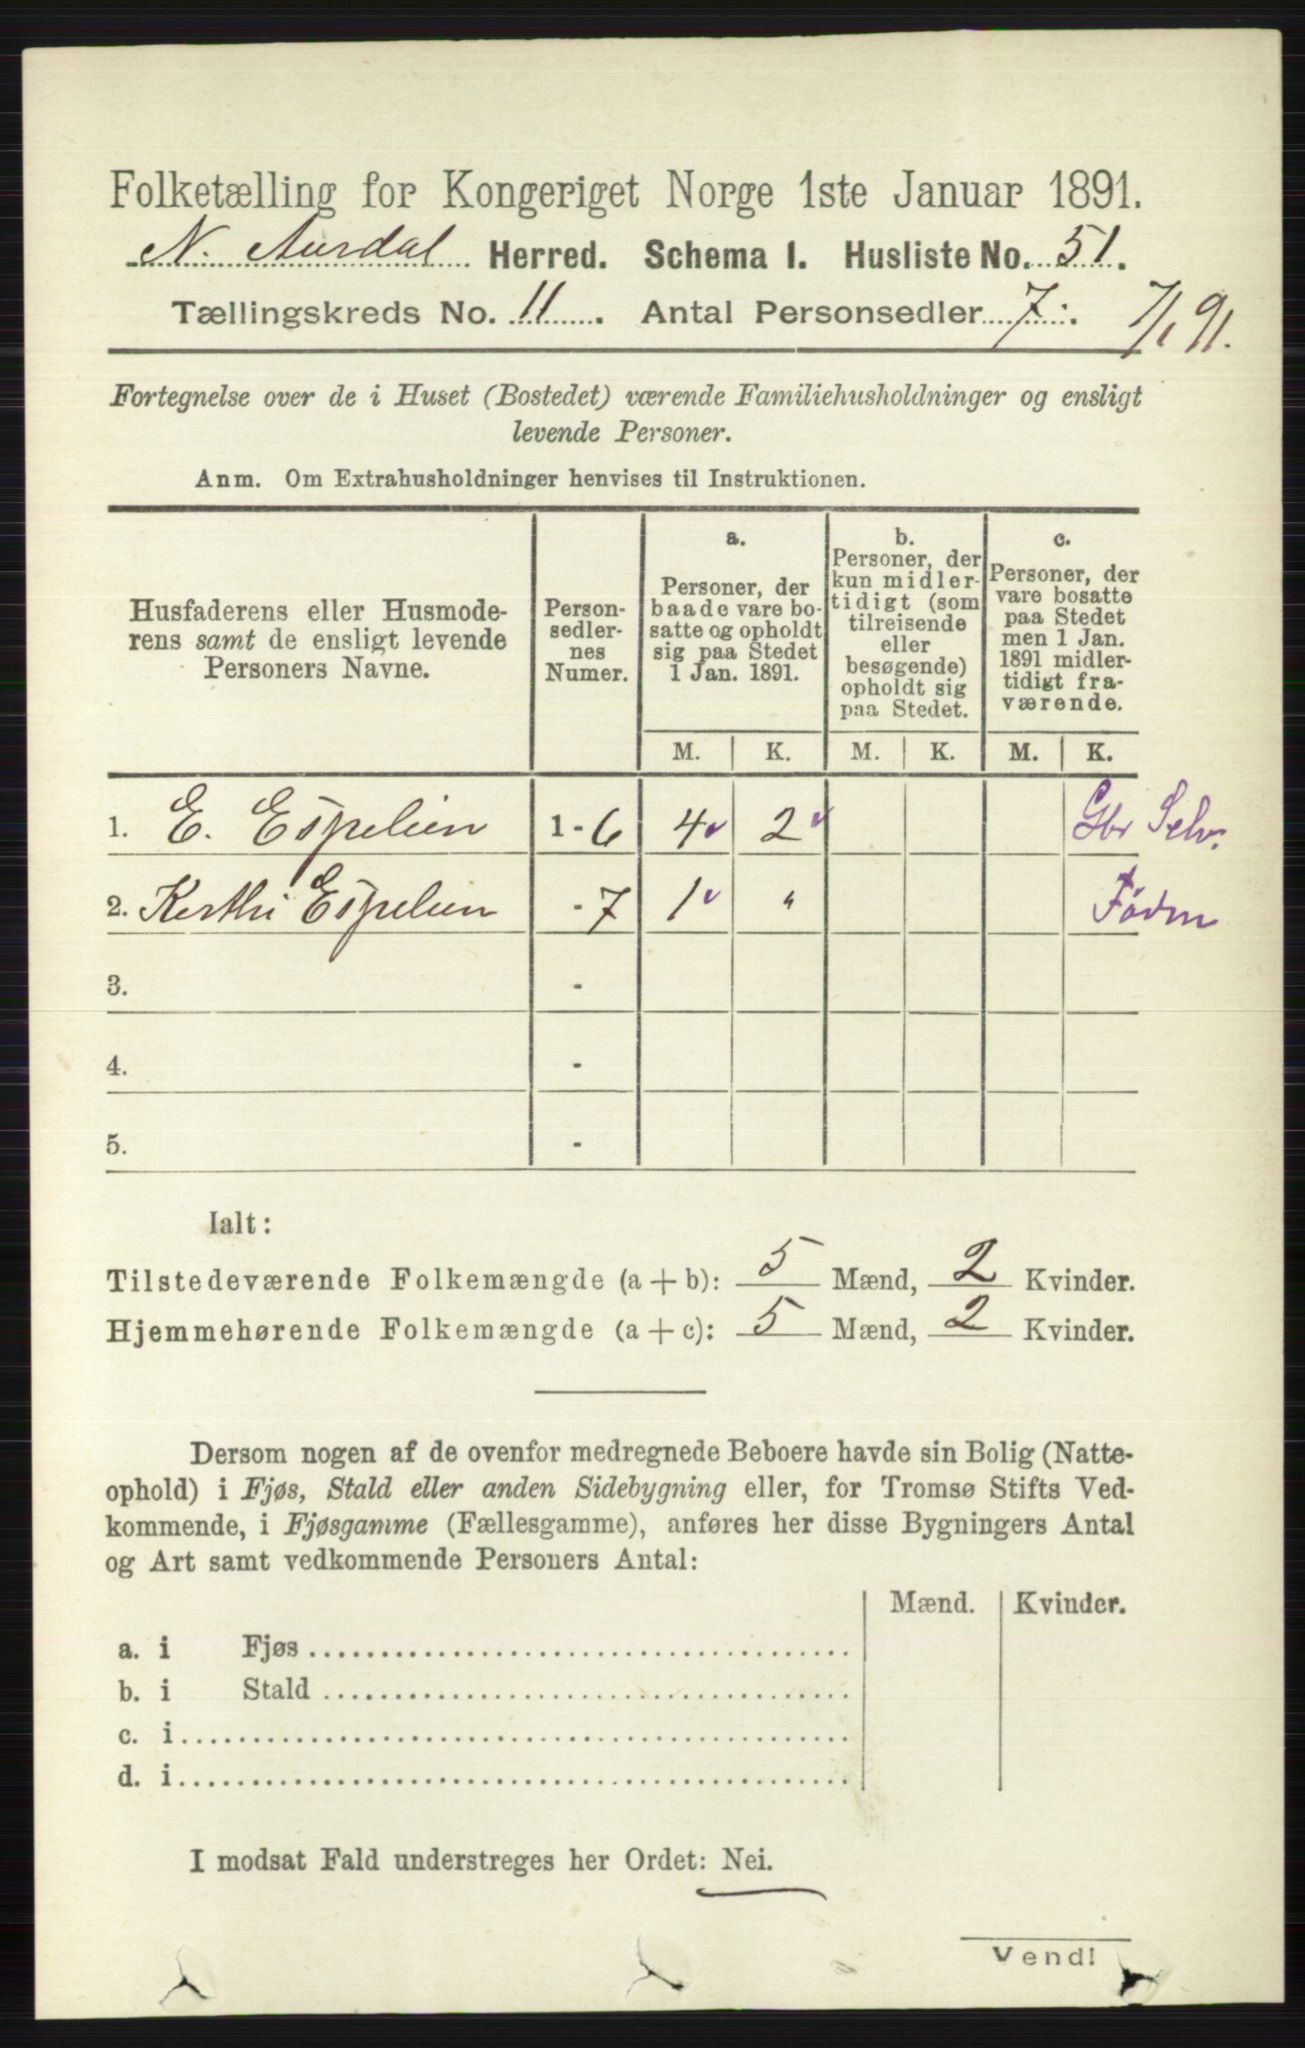 Folketælling for Kongeriget Norge 1ste Januar 1891.
N. Aurdal Herred. Schema 1. Husliste No. 51.
Tællingskreds No. 11. Antal Personsedler 7.
7/1 91.
Fortegnelse over de i Huset (Bostedet) værende Familiehusholdninger og ensligt
levende Personer.
Anm. Om Extrahusholdninger henvises til Instruktionen.
Husfaderens eller Husmode-
rens samt de ensligt levende
Personers Navne.
Person-
sedler-
nes
Numer.
a.
Personer, der
baade vare bo-
satte og opholdt
sig paa Stedet
1 Jan. 1891.
b.
Personer, der
kun midler-
tidigt (som
tilreisende
eller
besøgende)
opholdt sig
paa Stedet.
c.
Personer, der
vare bosatte
paa Stedet
men 1 Jan.
1891 midler-
tidigt fra-
værende.
M. K. M. K. M. K.
1. E. Espelien 1 - 6 4 2 Gbr Selv.
2. Kerthi Espelien - 7 1 " Føderm
3. -
4. -
5. -
Ialt:
Tilstedeværende Folkemængde (a + b): 5 Mænd, 2 Kvinder.
Hjemmehørende Folkemængde (a + c): 5 Mænd, 2 Kvinder.
Dersom nogen af de ovenfor medregnede Beboere havde sin Bolig (Natte-
ophold) i Fjøs, Stald eller anden Sidebygning eller, for Tromsø Stifts Ved-
kommende, i Fjøsgamme (Fællesgamme), anføres her disse Bygningers Antal
og Art samt vedkommende Personers Antal:
Mænd. Kvinder.
a. i Fjøs
b. i Stald
c. i
d. i
I modsat Fald understreges her Ordet: Nei.
Vend!